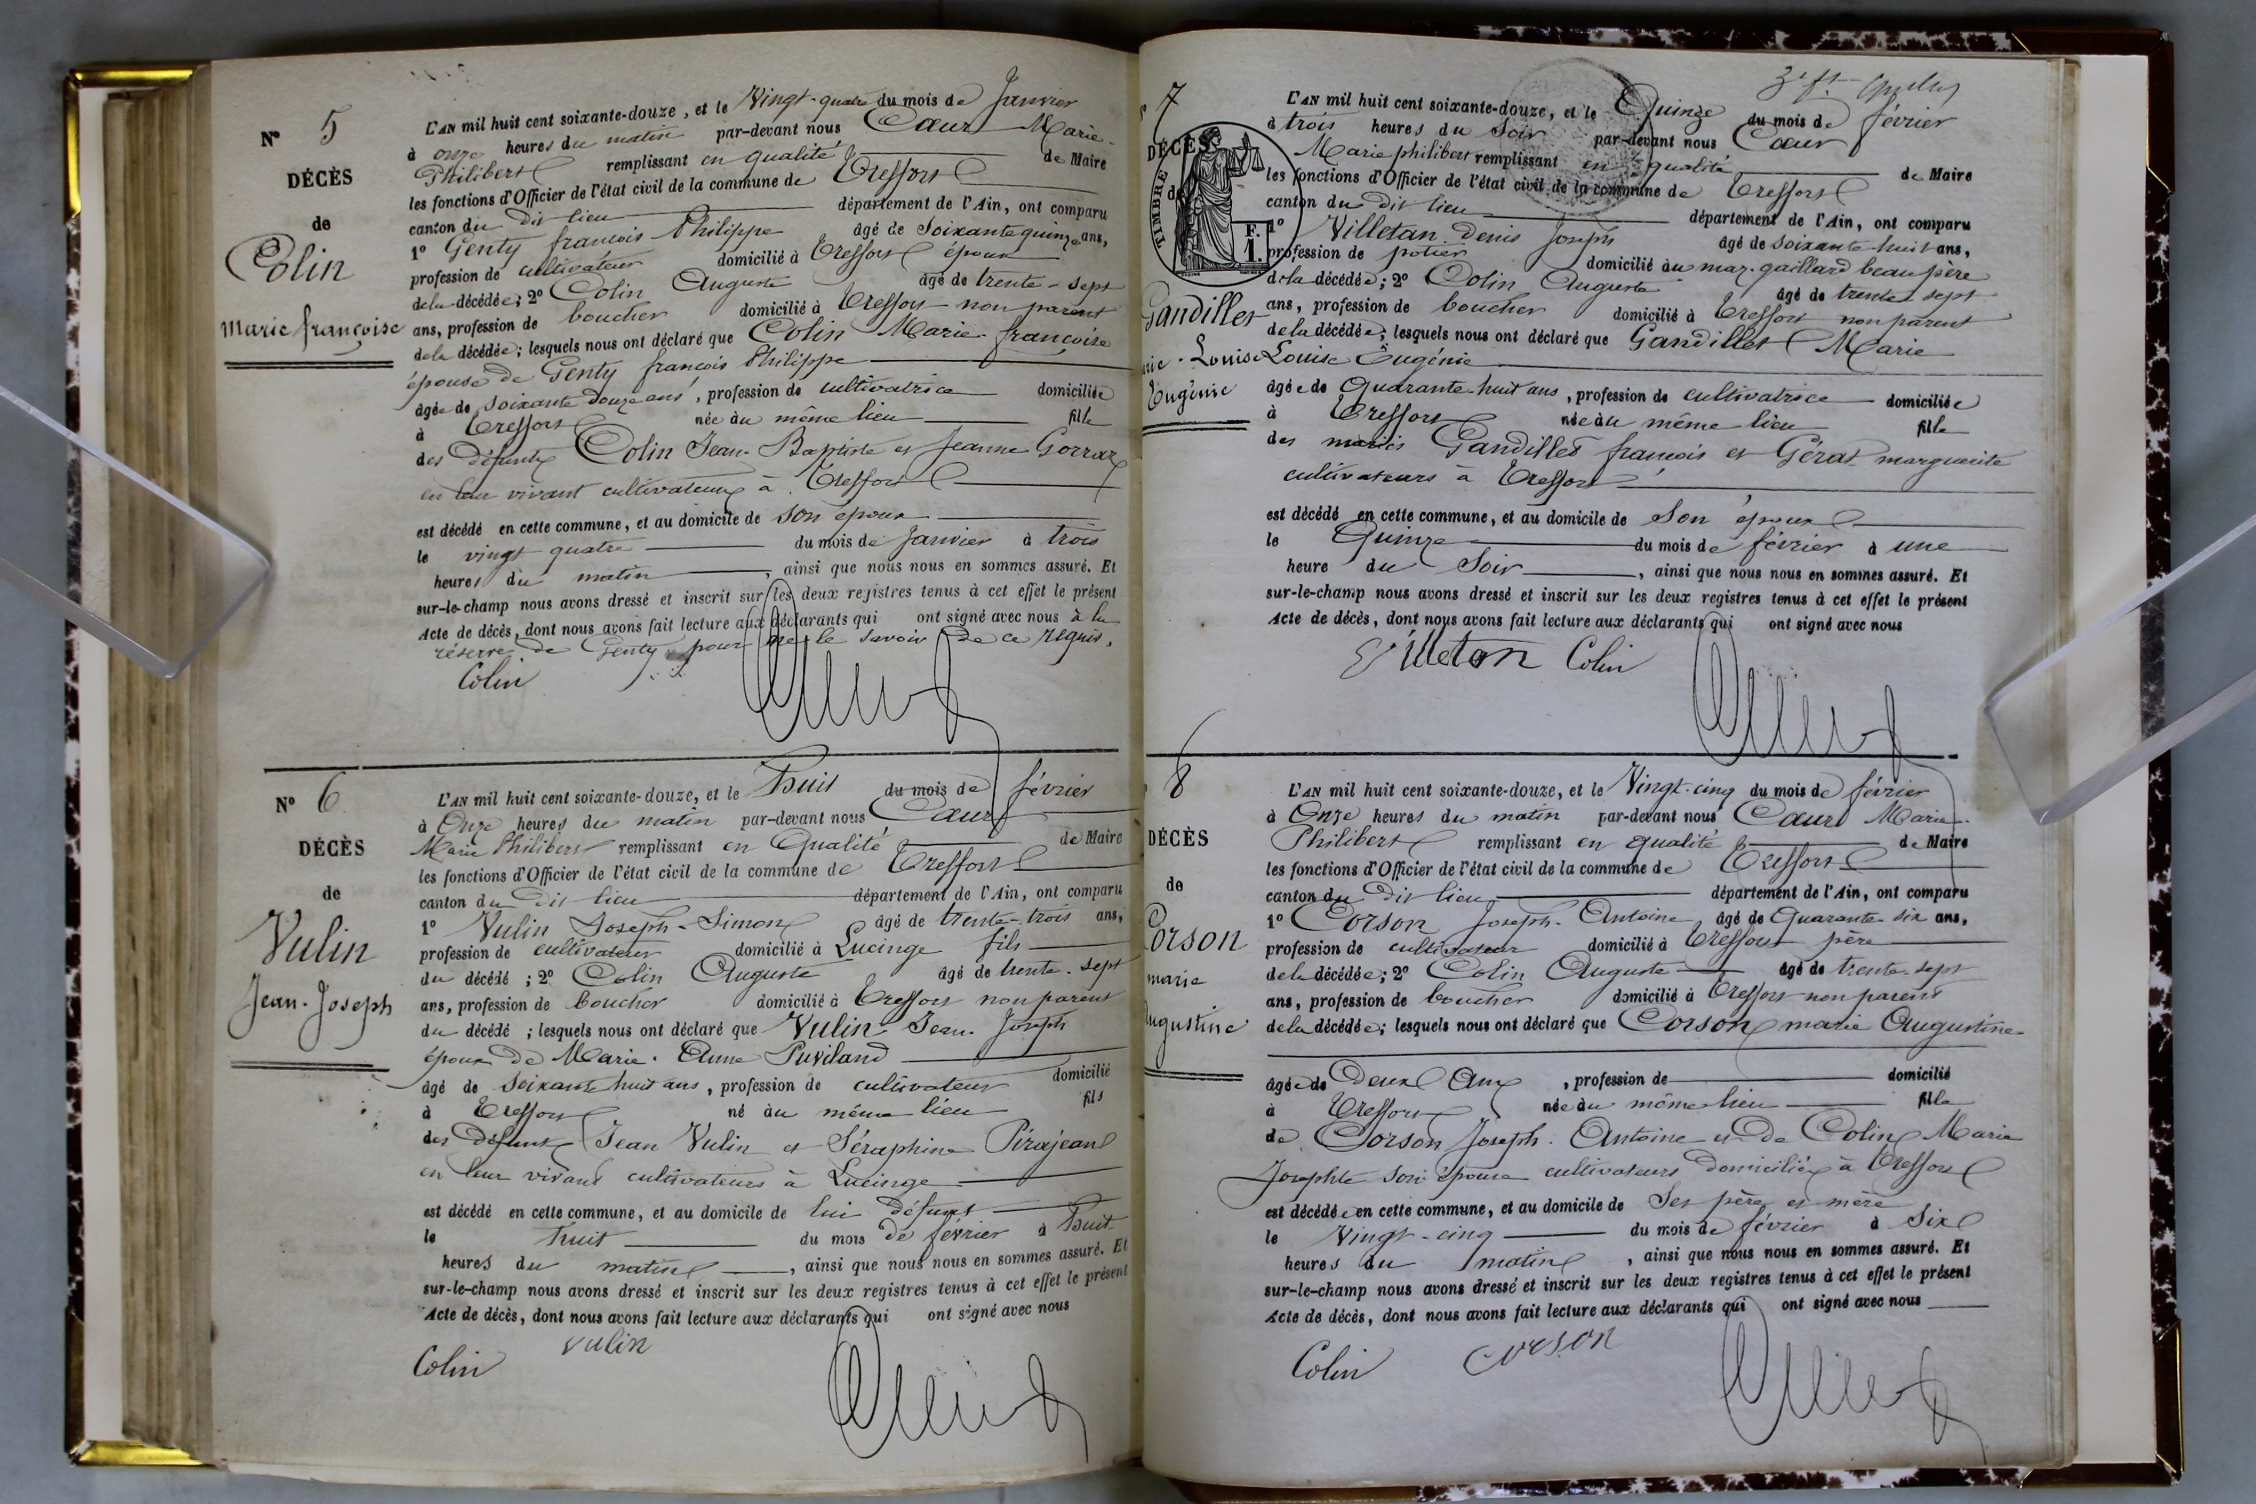 N° 5
DÉCÈS
de
Colin
Marie françoise
L'AN mil huit cent soixante-douze, et le Vingt-quatre du mois de Janvier
à onze heures du matin par-devant nous Cœur Marie-
Philibert remplissant en qualité de Maire
les fonctions d'Officier de l'état civil de la commune de Treffort
canton du dit lieu département de l'Ain, ont comparu
1° Genty françois Philippe âgé de Soixante quinze ans,
profession de cultivateur domicilié à Treffort époux
de la décédée; 2° Colin Auguste âgé de trente-sept
ans, profession de boucher domicilié à Treffort non parent
de la décédée; lesquels nous ont déclaré que Colin Marie-françoise
épouse de Genty françois Philippe
âgée de soixante douze ans, profession de cultivatrice domiciliée
à Treffort née au même lieu fille
des défunts Colin Jean-Baptiste et Jeanne Gorraz
en leur vivant cultivateurs à Treffort
est décédé en cette commune, et au domicile de son époux
le vingt quatre du mois de Janvier à trois
heures du matin, ainsi que nous nous en sommes assuré. Et
sur-le-champ nous avons dressé et inscrit sur les deux rejistres tenus à cet effet le présent
Acte de décès, dont nous avons fait lecture aux déclarants qui ont signé avec nous à la
réserve de Genty pour ne le savoir de ce requis.
Colin
N° 6
DÉCÈS
de
Vulin
Jean-Joseph
L'AN mil huit cent soixante-douze, et le Huit du mois de février
à Onze heures du matin par-devant nous Cœur
Marie Philibert remplissant en Qualité de Maire
les fonctions d'Officier de l'état civil de la commune de Treffort
canton du dit lieu département de l'Ain, ont comparu
1° Vulin Joseph-Simon âgé de trente-trois ans,
profession de cultivateur domicilié à Lucinge fils
du décédé; 2° Colin Auguste âgé de trente-sept
ans, profession de boucher domicilié à Treffort non parent
du décédé; lesquels nous ont déclaré que Vulin Jean-Joseph
époux de Marie-Anne Puviland
âgé de Soixante huit ans, profession de cultivateur domicilié
à Treffort né au même lieu fils
des défunts Jean Vulin et Séraphine Pirajean
en leur vivant cultivateurs à Lucinge
est décédé en cette commune, et au domicile de lui défunt
le huit du mois de février à Huit
heures du matin, ainsi que nous nous en sommes assuré. Et
sur-le-champ nous avons dressé et inscrit sur les deux registres tenus à cet effet le présent
Acte de décès, dont nous avons fait lecture aux déclarants qui ont signé avec nous
Vulin
Colin
7
DÉCÈS
de
TIMBRE
F.
1.
Gandillet
Louise
Eugénie
L'AN mil huit cent soixante-douze, et le Quinze du mois de février
à trois heures du Soir par-devant nous Cœur
Marie philibert remplissant en qualité de Maire
les fonctions d'Officier de l'état civil de la commune de Treffort
canton du dit lieu département de l'Ain, ont comparu
1° Villetan Denis Joseph âgé de soixante-huit ans,
profession de potier domicilié au maz. gaillard beau père
de la décédée; 2° Colin Auguste âgé de trente sept
ans, profession de boucher domicilié à Treffort non parent
de la décédée; lesquels nous ont déclaré que Gandillet Marie
Louise Eugénie
âgée de Quarante-huit ans, profession de cultivatrice domiciliée
à Treffort née au même lieu fille
des mariés Gandillet françois et Gérat marguerite
cultivateurs à Treffort
est décédé en cette commune, et au domicile de son époux
le Quinze du mois de février à une
heure du Soir, ainsi que nous nous en sommes assuré. Et
sur-le-champ nous avons dressé et inscrit sur les deux registres tenus à cet effet le présent
Acte de décès, dont nous avons fait lecture aux déclarants qui ont signé avec nous
Villeton Colin
8
DÉCÈS
de
Corson
marie
Augustine
L'AN mil huit cent soixante-douze, et le Vingt-cinq du mois de février
à Onze heures du matin par-devant nous Cœur Marie-
Philibert remplissant en qualité de Maire
les fonctions d'Officier de l'état civil de la commune de Treffort
canton du dit lieu département de l'Ain, ont comparu
1° Corson Joseph-Antoine âgé de Quarante-six ans,
profession de cultivateur domicilié à Treffort père
de la décédée; 2° Colin Auguste âgé de trente-sept
ans, profession de boucher domicilié à Treffort non parent
de la décédée; lesquels nous ont déclaré que Corson marie Augustine
âgée de Deux Ans, profession de domicilié
à Treffort née au même lieu fille
de Corson Joseph-Antoine et De Colin Marie
Josephte son épouse cultivateurs domiciliés à Treffort
est décédée en cette commune, et au domicile de Ses père et mère
le Vingt-cinq du mois de février à Six
heures du matin, ainsi que nous nous en sommes assuré. Et
sur-le-champ nous avons dressé et inscrit sur les deux registres tenus à cet effet le présent
Acte de décès, dont nous avons fait lecture aux déclarants qui ont signé avec nous
Colin Corson